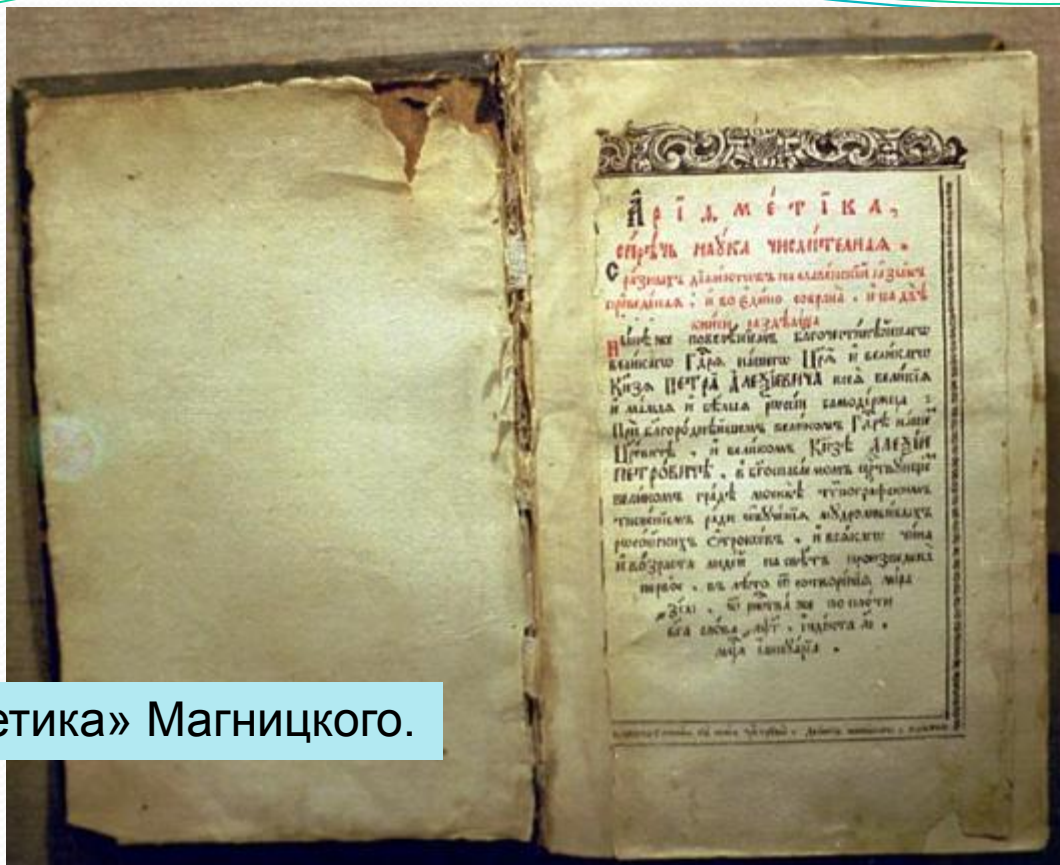 А҆рі́ѳме́тїка,
си́рѣчь нау́ка числи́телная .
С ра́зныхъ дїале́ктовъ на славе́нскїй ѧ҆зы́къ
преведе́наѧ , и҆ во є҆ди́но собрана̀ , и҆ на двѣ̀
кни́ги раздѣлена̀
Ны́нѣ же повелѣ́нїемъ благочести́вѣйшагѡ
вели́кагѡ Гдⷭ҇рѧ на́шегѡ Цр҃ѧ̀ и҆ вели́кагѡ
Кн҃зѧ ПЕТРА̀ А҆ЛЕѮІ́ЕВИЧА всеѧ̀ вели́кїѧ
и҆ ма́лыѧ и҆ бѣ́лыѧ рѡссі́и самоде́ржца :
При благоро́днѣйшемъ вели́комъ Гдⷭ҇рѣ на́шемъ
Цр҃е́вичѣ , и҆ вели́комъ Кн҃зѣ А҆ЛЕѮІ́И
ПЕТРО́ВИЧѢ , в бг҃оспаса́емомъ ца́рствующемъ
вели́комъ гра́дѣ москвѣ̀ тѵпогра́фскимъ
тисне́нїемъ ра́ди ѡ҆буче́нїѧ мудролюби́выхъ
рѡссі́йскихъ ѻ҆́трокѡвъ , и҆ всѧ́кагѡ чи́на
и҆ во́зраста люде́й на свѣ́тъ произведена̀
пе́рвое , въ лѣ́то ѿ сотворе́нїѧ мі́ра
҂зсаі , ѿ рождества̀ же по пло́ти
бг҃а сло́ва ҂аѱг , і҆ндїкта аі .
мцⷭ҇а і҆аннуа́рїа .
етика» Магницкого.